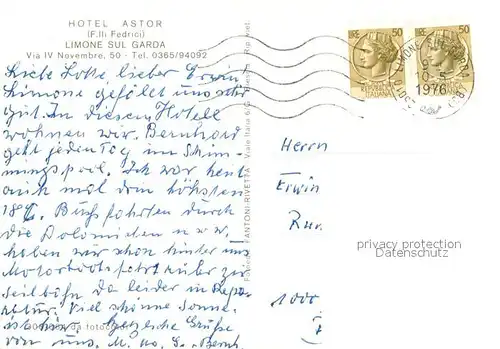 HOTEL ASTOR
(F.lli Fedrici)
LIMONE SUL GARDA
Via IV Novembre, 50 - Tel. 0365/94092
Liebe Lotte, lieber Erwin
Limone gefällt uns sehr
gut. In diesem Hotell
wohnen wir. Bernhard
geht jeden Tag im Swim-
mingspool. Ich war heut
auch mal dem höchsten
18°C. Busfahrten durch
die Dolomiten u.s.w.
haben wir schon hinter uns
Motorbootsfahrt über zu
Seilbahn da leider in Repa-
ratur. Viel schöne Sonne
ist hier. Herzliche Grüße
von uns. M. u. G. Bernh.
da fotocolor
FANTONI-RIVETTA - Viale Italia 6/G
LIRE 50
REPUBBLICA ITALIANA
LIRE 50
LIMONE SUL GARDA
10.5
1976
Herrn
Erwin
Rur
privacy protection
Datenschutz
1000